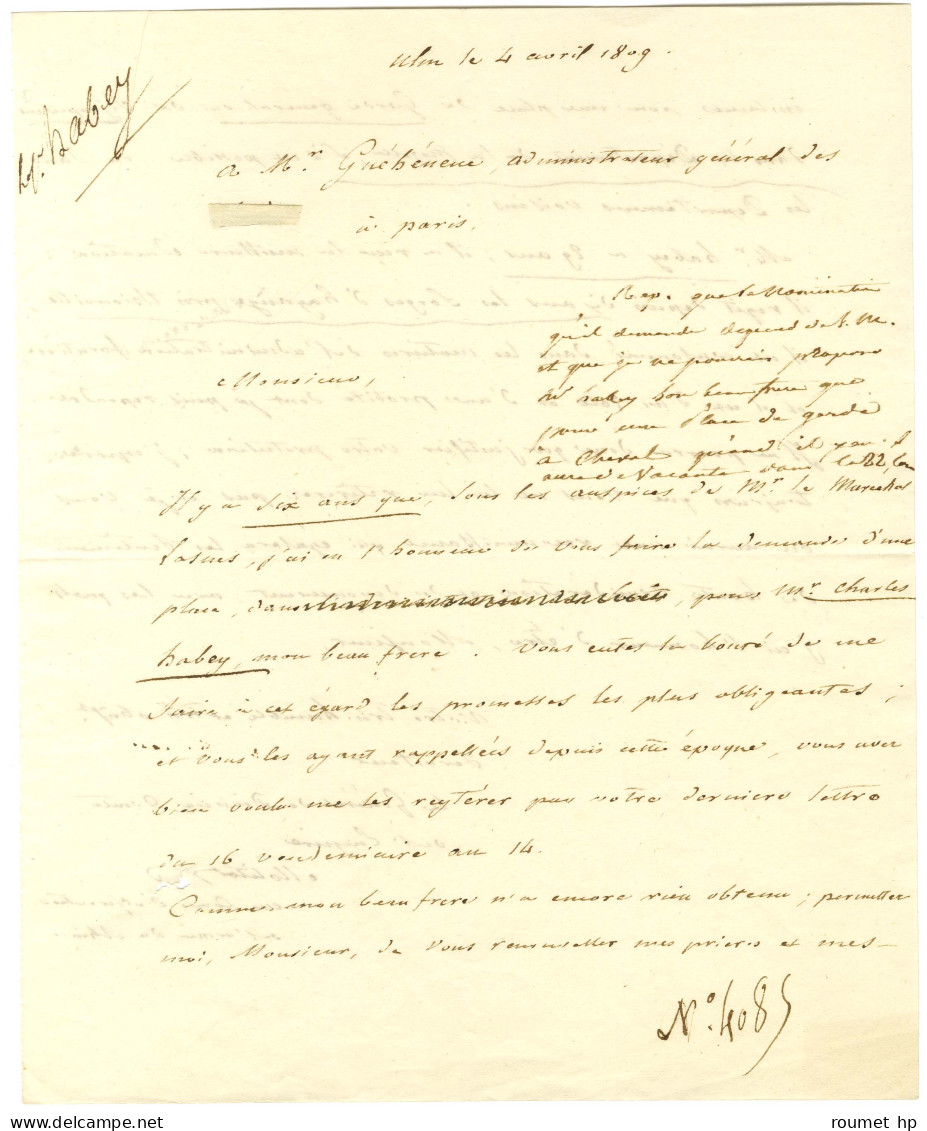 Ulm le 4 avril 1809.
habey
a Mr. Guéhéneuc, administrateur général des
à paris,
Rep. que la Nomination
qu'il demande depend de S. M.
et que je ne pouvois proposer
Mr habey son beau frere que
pour une place de garde
à cheval quand il y en
aura de Vacante dans la 22
Monsieur,
Il y a six ans que, sous les auspices de Mr. le Marechal
Lasnes, j'ai eu l'honneur de vous faire la demande d'une
place, dans , pour Mr. Charles
habey, mon beau frere. Vous eutes la bonté de me
faire à cet égard les promesses les plus obligeantes;
et vous les ayant rappellées depuis cette époque, vous avez
bien voulu me les reytérer par votre derniere lettre
du 16 vendemiaire an 14.
Comme mon beau frere n'a encore rien obtenu; permettez
moi, Monsieur, de vous renouveller mes prieres et mes
N°. 4085
roumet hp